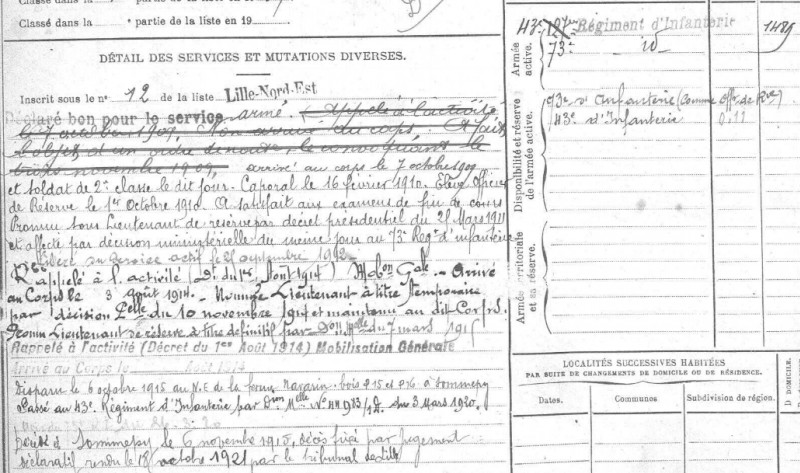 Classé dans la partie de la liste en 19
DÉTAIL DES SERVICES ET MUTATIONS DIVERSES.
Inscrit sous le n° 12 de la liste Lille-Nord-Est
Déclaré bon pour le service armé. Appelé à l'activité
le 7 octobre 1909. Non arrivé au corps. A fait
l'objet d'un ordre de route le convoquant le
novembre 1909, arrivé au corps le 7 octobre 1909
et soldat de 2e classe le dit jour. Caporal le 16 février 1910. Élève Officier
de Réserve le 1er Octobre 1910. A satisfait aux examens de fin de cours
Promu sous Lieutenant de réserve par décret présidentiel du 21 Mars 1911
et affecté par décision ministérielle du même jour au 73e Regt d'infanterie
en service actif le 25 septembre
Rappelé à l'activité (Dt du 1er Août 1914) Mobon Gale - Arrivé
au Corps le 3 Août 1914. - Nommé Lieutenant à titre temporaire
par décision du 10 novembre 1914 et maintenu au dit Corps.
Promu Lieutenant de réserve à titre définitif par Don Mlle du 7 mars 191
Rappelé à l'activité (Décret du 1er Août 1914) Mobilisation Générale
Arrivé au Corps le Août 1914
Disparu le 6 octobre 1915 au N.E de la ferme Navarin - bois 215 et à Sommepy
Passé au 43e Régiment d'Infanterie par Dion Mlle No du 3 Mars 1920.
Décédé à Sommepy le 6 novembre 1915, décès fixé par jugement
déclaratif rendu le 18 octobre 1921 par le tribunal de Lille
Armée active.
43e Régiment d'Infanterie
73e id 1489
Disponibilité et réserve de l'armée active.
73e d'Infanterie (Comme Offr de Rve)
43e d'Infanterie
Armée territoriale et sa réserve.
LOCALITÉS SUCCESSIVES HABITÉES
PAR SUITE DE CHANGEMENTS DE DOMICILE OU DE RÉSIDENCE.
Dates. Communes Subdivision de région. D. DOMICILE.